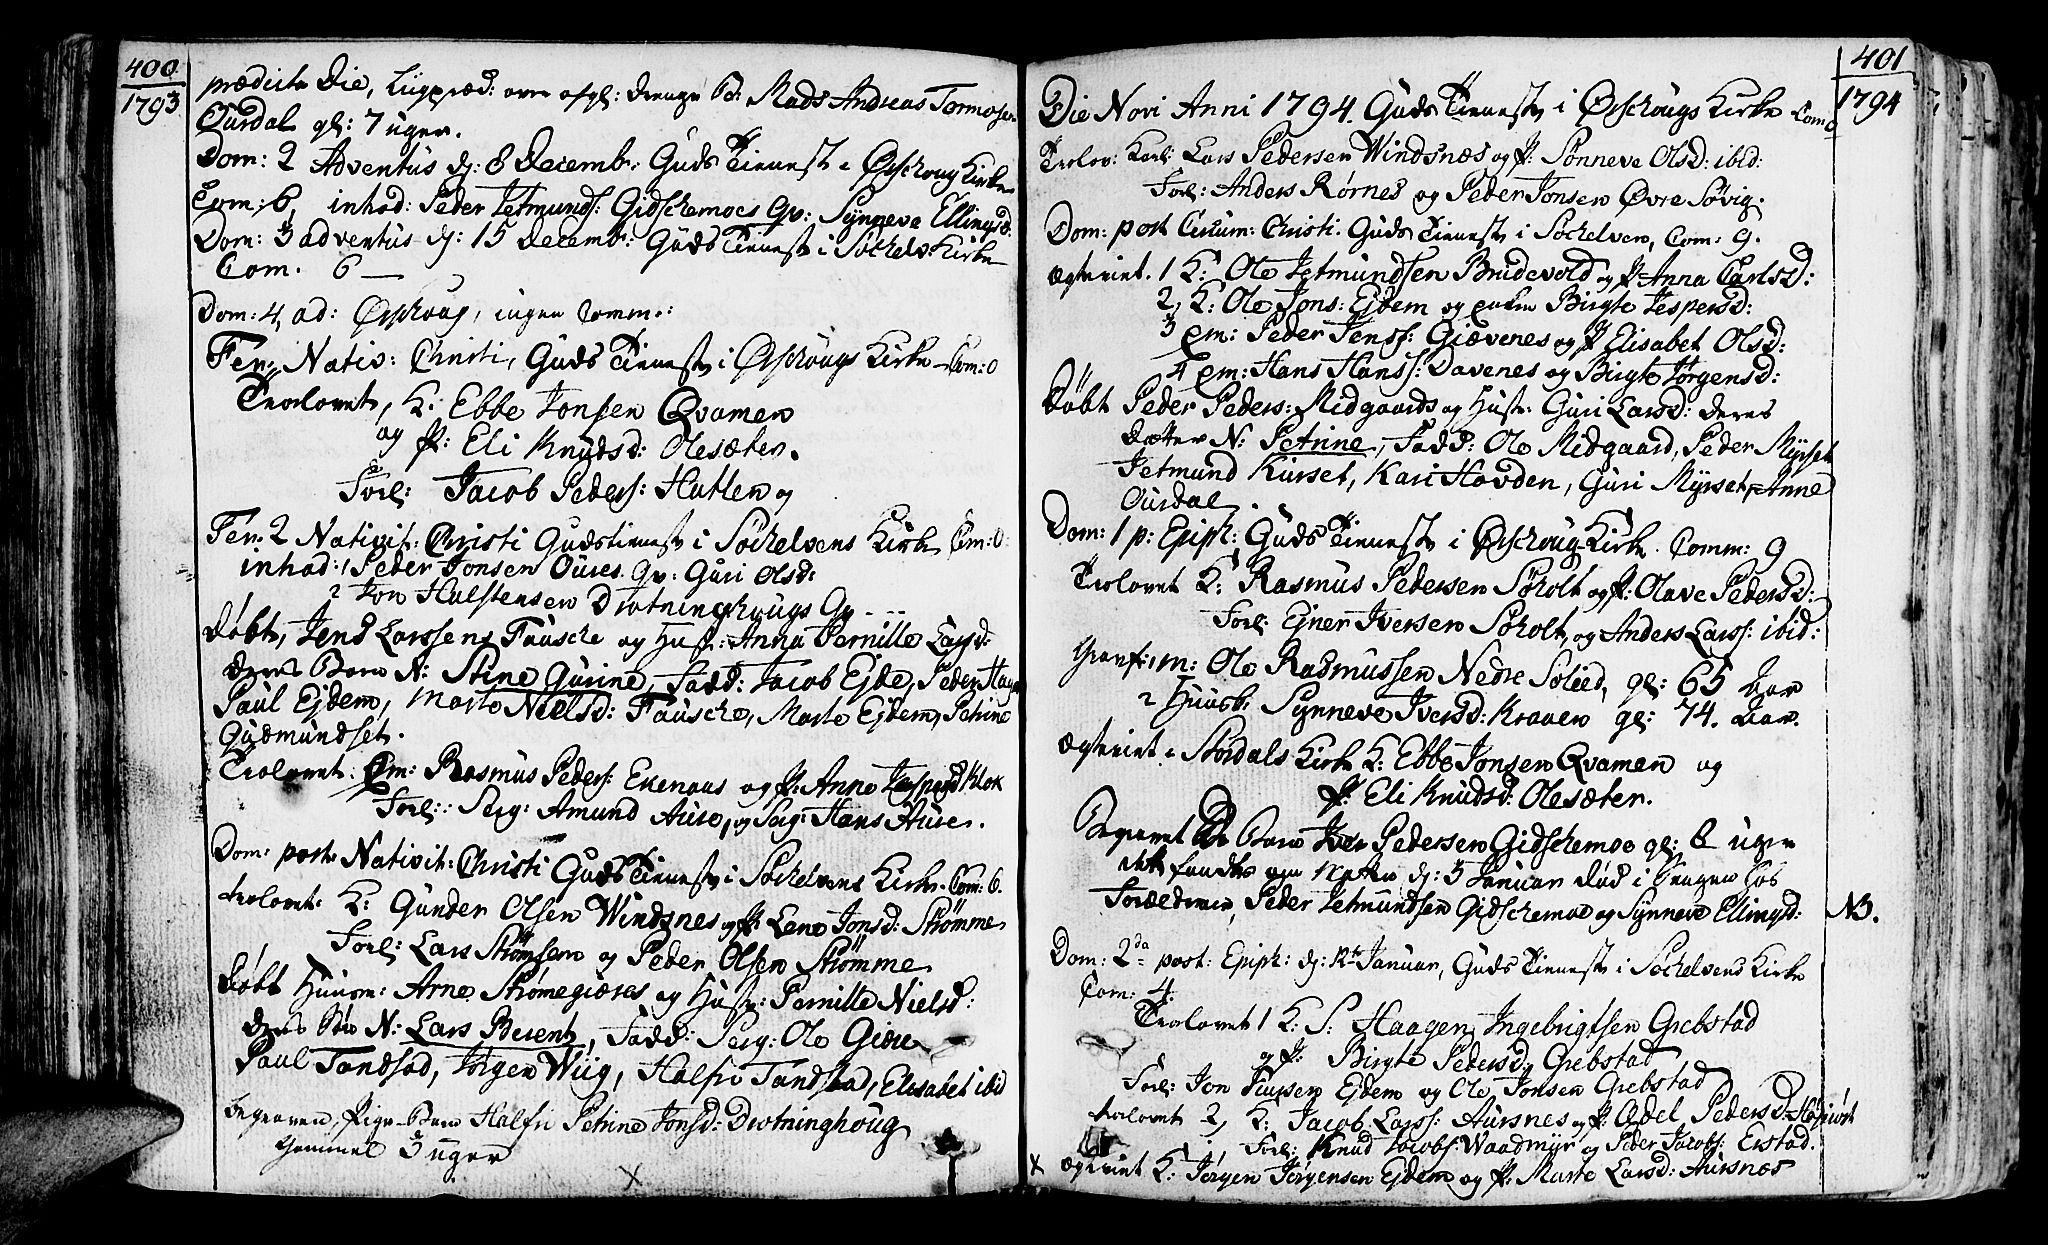 400
1793
prædicte Die, Liigpræd: over afgl: drenge B: Mads Andreas Tormosen
Ourdal gl: 7 uger.
Dom: 2 Adventus dj: 8 Decembr: Guds Tieneste i Ørschoug Kirke
Com: 6, inhod: Peder Jetmunds: Gidschemoes Qv: Synneve Ellingsd:
Dom: 3 adventus dj: 15 Decembr: Guds Tieneste i Søchelv: Kirke
Com. 6 —
Dom: 4, ad: Ørschoug, ingen Comm::
Fer: Nativ: Christi, Guds Tieneste i Ørschougs Kirke - Com: 0
Trolovet, K: Ebbe Jonsen Qvamen
og P: Eli Knudsd: Olesæter.
Forl: Jacob Peders: Hatlen og
Fer: 2 Nativit: Christi Gudstieneste i Søchelvens Kirke Com: 0
inhod: 1 Peder Jonsen Oures. Qv: Guri Olsd:
2 Jon Halstensen Drotninghougs Qv - - -
Døbt, Jens Larssens Fausche og Hust: Anna Pernille Larsd:
deres Barn N: Stine Gurine, Fadd: Jacob Ejde, Peder Hagen
Paul Ejdem, Marte Nielsd: Fausche, Marte Ejdem, Petrine
Gudmundset.
Trolovet: Em: Rasmus Peders: Ekenaus og P: Anne Jespersd Klok
Forl: Serg: Amund Aure, og Serg: Hans Aure.
Dom: post Nativit: Christi Guds Tieneste i Søchelvens Kirke. Com: 6.
trolovet: K: Gunder Olsen Windsnes og P: Lene Jonsd: Strømme
Forl: Lars Strømsem og Peder Olsen Strømme
Døbt Huusm: Arne Strømegieres og Hust: Pernille Nielsd:
deres Søn N: Lars Berent, Fadd: Serg: Ole Giere
Paul Tandstad, Jørgen Wiig, Halfri Tandstad, Elisabet ibid
begraven, Pige-Barn Halfri Petrine Jonsd: Drotninghoug
Gammel 3 uger
401
1794
Die Novi Anni 1794. Guds Tieneste i Ørschougs Kirke Com 0
Trolov: Karl: Lars Pedersen Windsnæs og P: Sønneve Olsd: ibid:
Forl: Anders Rørnes og Peder Jonsen Øvre Søvig.
Dom: post Circum: Christi. Guds Tieneste i Søchelven, Com: 9.
Ægteviet. 1 K: Ole Jetmundsen Brudevold og P: Anna Carlsd:
2, K: Ole Jons: Ejdem og enken Birgte Jespersd:
3 em: Peder Jenss: Giævenes og P Elisabet Olsd:
4 em: Hans Hanss: Davenes og Birgte Jørgensd:
Døbt Peder Peders: Midgaards og Hustr: Guri Larsd: deres
datter N: Petrine, Fadd: Ole Midgaard, Peder Myrset
Jetmund Kurset, Kari Hovden, Guri Myrset, Anne
Ourdal
Dom: 1 p: Epiph: Guds Tieneste i Ørschoug-Kirke. Comm: 9
Trolovet K: Rasmus Pedersen Søholt og P: Olave Pedersd:
Forl: Ejner Iversen Søholt, og Anders Larss: ibid:
Granf: 1 m: Ole Radmussen Nedre Soleed, gl: 65 Aar
2 Huusk: Synneve Iversd: Kraaen gl: 74. Aar.
Ægteviet i Stordals Kirke K: Ebbe Jonsen Qvamen og
P: Eli Knudsd: Olesæter.
Begravet Barn Iver Pedersen Gidschemoe gl: 8 uger
som fandtes om Natten dj: 3 Januar død i Sengen hos
Forældrene, Peder Jetmundsen Gidschemoe og Synneve Ellingsd: NB.
Dom: 2da post: Epiph: dj: 12te Januar, Guds Tieneste i Søchelvens Kirke
Com: 4.
Trolovet 1 K: S: Haagen Ingebrigtsen Grebstad
og P: Birgte Pedersd: Grebstad
Forl: Jon Ejdem og Ole Jonsen Grebstad
trolovet 2, K: Jacob Larss: Aursnes og P: Odel Pedersd:
Forl: Knud Jacobs: Waadmyr og Peder Jacobs: Erstad.
x Ægteviet K: Jørgen Jørgensen Ejdem og P: Marte Larsd: Aursnæs
x